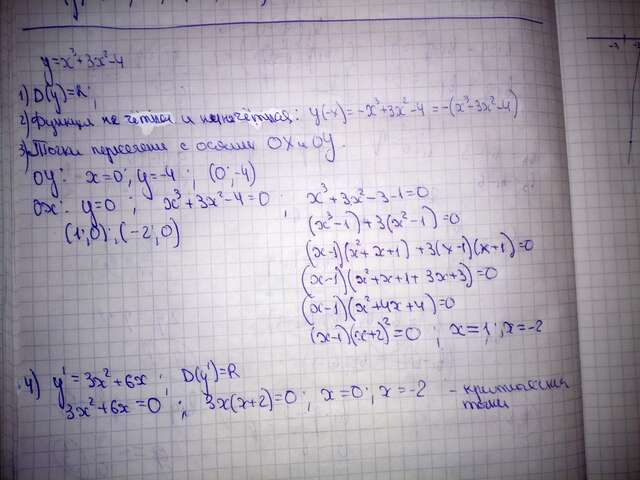 y=x³+3x²-4
1) D(y)=R;
2) функция не чётная и не нечётная: y(-x)=-x³+3x²-4=-(x³-3x²+4)
3) Точки пересечения с осями OX и OY.
OY: x=0; y=-4; (0;-4)
OX: y=0; x³+3x²-4=0;
(1;0); (-2;0)
x³+3x²-3-1=0
(x³-1)+3(x²-1)=0
(x-1)(x²+x+1)+3(x-1)(x+1)=0
(x-1)(x²+x+1+3x+3)=0
(x-1)(x²+4x+4)=0
(x-1)(x+2)²=0; x=1; x=-2
4) y'=3x²+6x; D(y')=R
3x²+6x=0; 3x(x+2)=0; x=0; x=-2 - критические точки